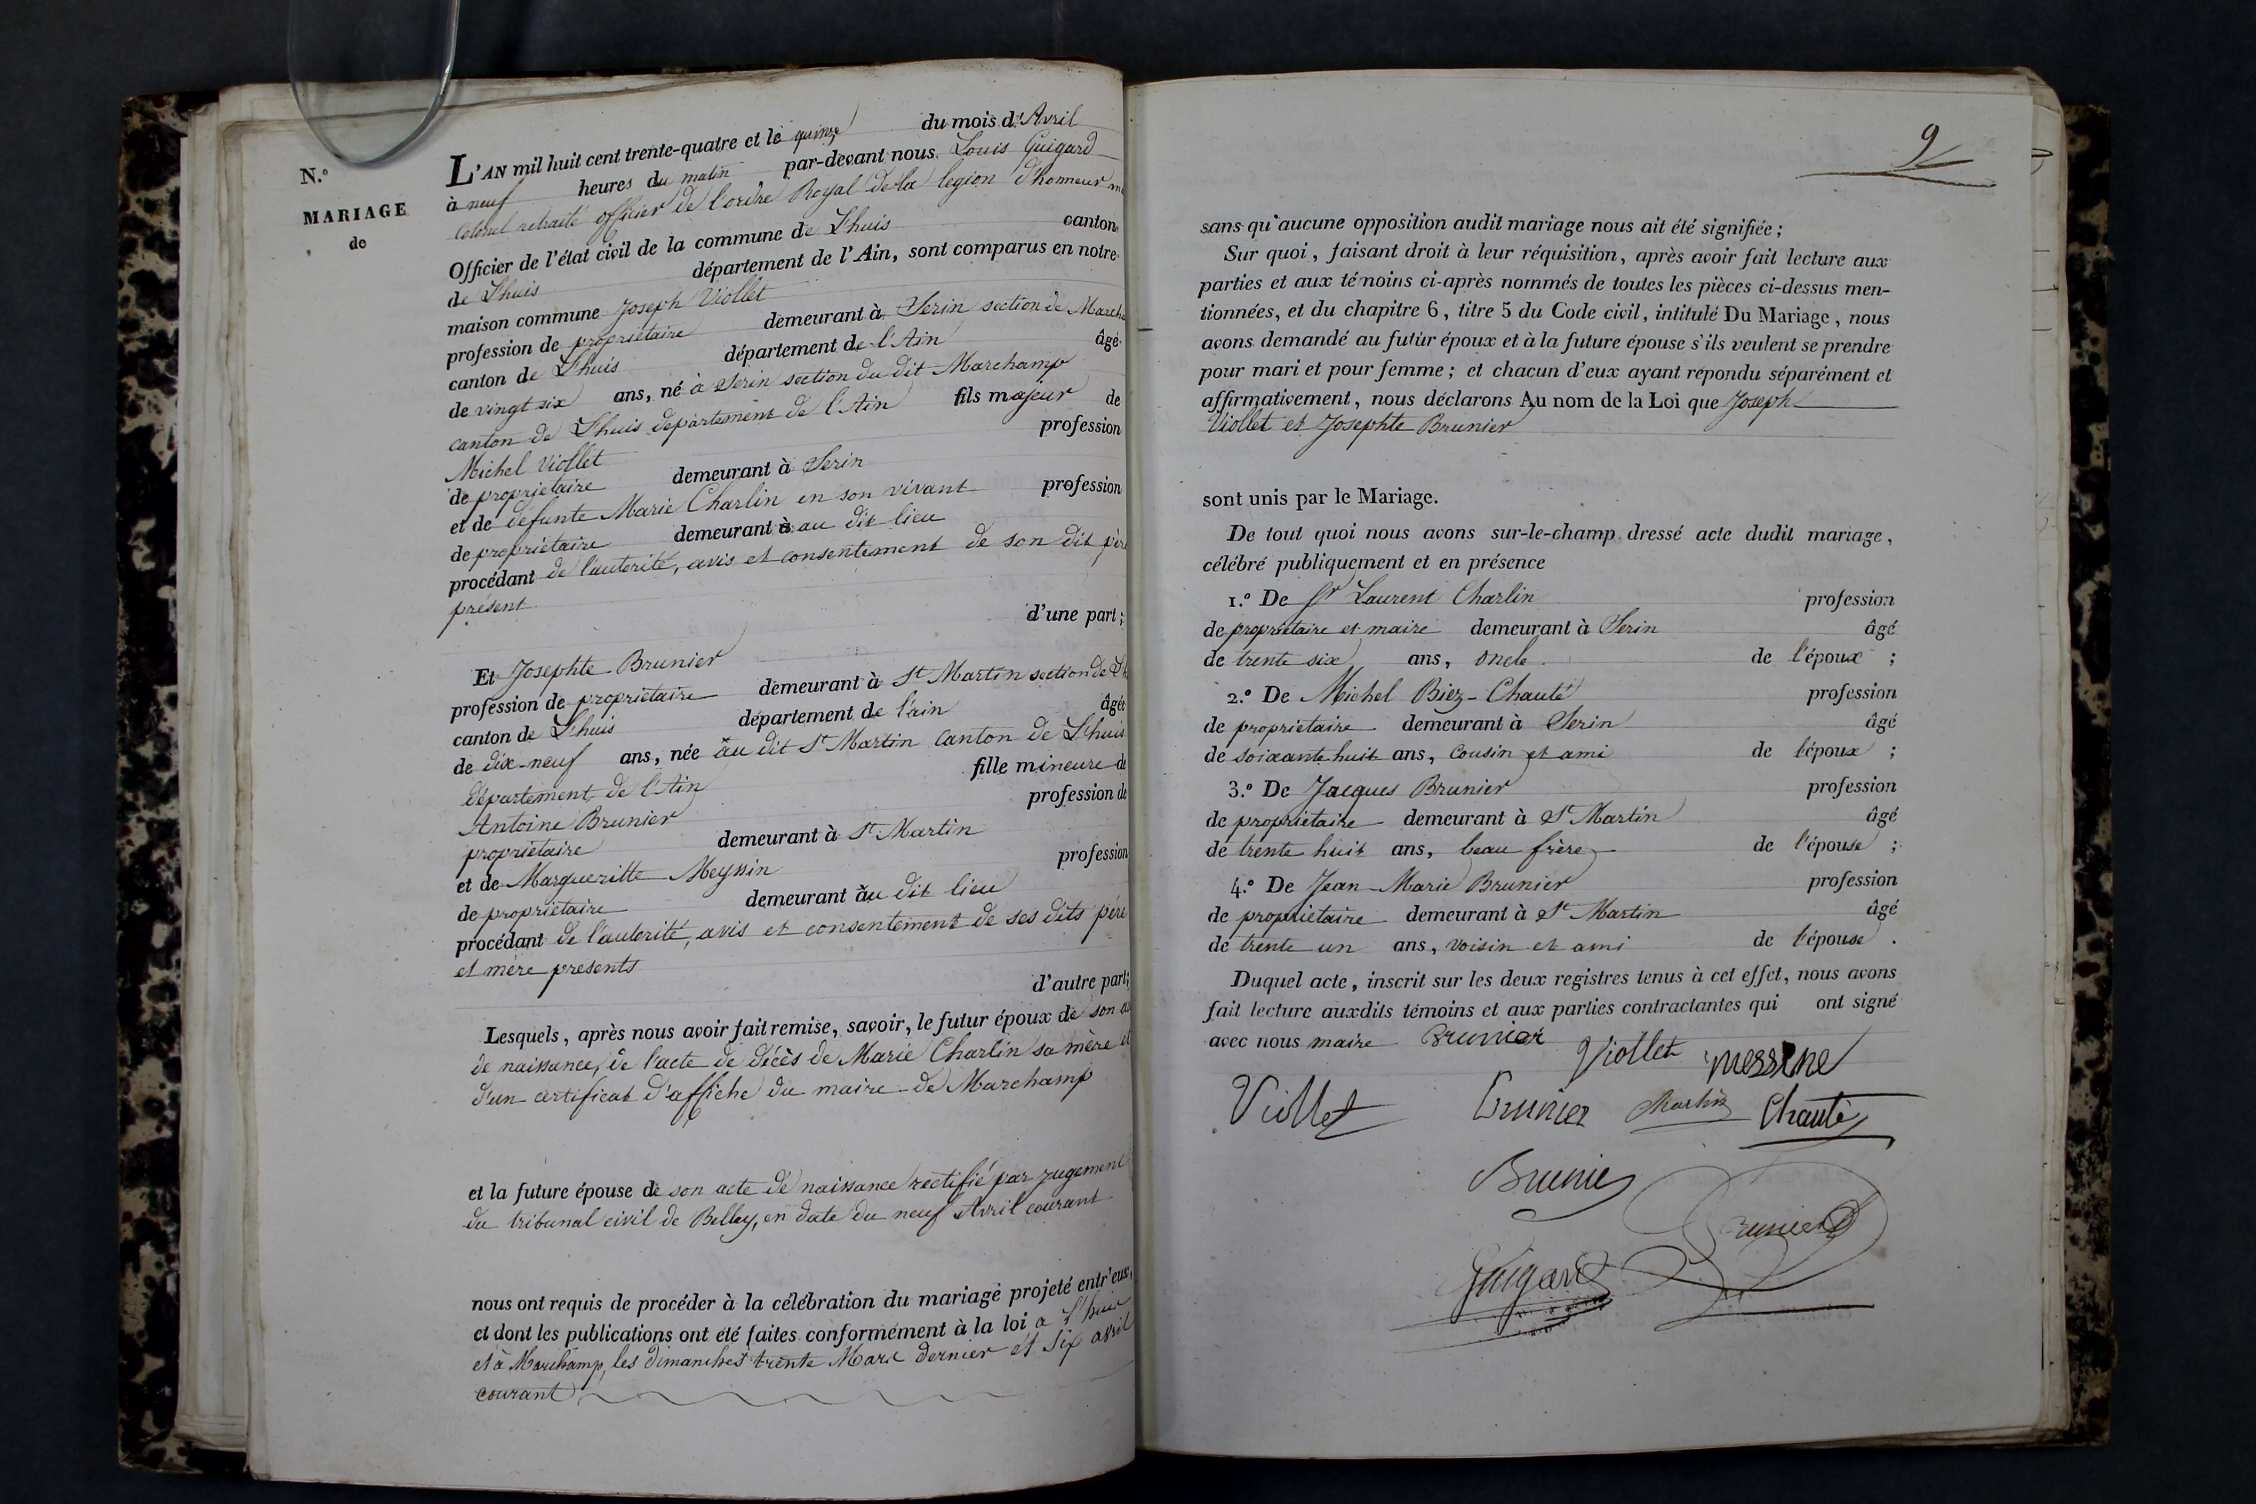 N.º
MARIAGE
de
L'AN mil huit cent trente-quatre et le quinze du mois d'Avril
à neuf heures du matin par-devant nous Louis Guigard
Colonel retraité officier de l'ordre Royal de la legion d'honneur
Officier de l'état civil de la commune de Lhuis canton
de Lhuis département de l'Ain, sont comparus en notre
maison commune Joseph Viollet
profession de propriétaire demeurant à Serin section de March
canton de Lhuis département de l'Ain âgé
de vingt six ans, né à Serin section du dit Marchamp
canton de Lhuis département de l'Ain fils majeur de
Michel Viollet profession
de propriétaire demeurant à Serin
et de défunte Marie Charlin en son vivant profession
de propriétaire demeurant à au dit lieu
procédant de l'autorité, avis et consentement de son dit père
présent
d'une part;
Et Josephte Brunier
profession de propriétaire demeurant à St Martin section de Lh
canton de Lhuis département de l'ain âgée
de dix-neuf ans, née au dit St Martin canton de Lhuis
département de l'Ain fille mineure de
Antoine Brunier profession de
propriétaire demeurant à St Martin
et de Margueritte Meyssin profession
de propriétaire demeurant au dit lieu
procédant de l'autorité, avis et consentement de ses dits père
et mère présents
d'autre part;
Lesquels, après nous avoir fait remise, savoir, le futur époux de son
de naissance, de l'acte de décès de Marie Charlin sa mère et
d'un certificat d'affiche du maire de Marchamp
et la future épouse de son acte de naissance rectifié par jugement
du tribunal civil de Belley, en date du neuf Avril courant
nous ont requis de procéder à la célébration du mariage projeté entr'eux,
et dont les publications ont été faites conformément à la loi a Lhuis
et à Marchamp, les dimanches trente Mars dernier et six avril
courant
9
sans qu'aucune opposition audit mariage nous ait été signifiée;
Sur quoi, faisant droit à leur réquisition, après avoir fait lecture aux
parties et aux témoins ci-après nommés de toutes les pièces ci-dessus men-
tionnées, et du chapitre 6, titre 5 du Code civil, intitulé Du Mariage, nous
avons demandé au futur époux et à la future épouse s'ils veulent se prendre
pour mari et pour femme; et chacun d'eux ayant répondu séparément et
affirmativement, nous déclarons Au nom de la Loi que Joseph
Viollet et Josephte Brunier
sont unis par le Mariage.
De tout quoi nous avons sur-le-champ dressé acte dudit mariage,
célébré publiquement et en présence
1.º De Sr Laurent Charlin profession
de propriétaire et maire demeurant à Serin âgé
de trente six ans, oncle de l'époux ;
2.º De Michel Biez-Chauté profession
de propriétaire demeurant à Serin âgé
de soixante huit ans, cousin et ami de l'époux ;
3.º De Jacques Brunier profession
de propriétaire demeurant à St Martin âgé
de trente huit ans, beau frère de l'épouse ;
4.º De Jean-Marie Brunier profession
de propriétaire demeurant à St Martin âgé
de trente un ans, voisin et ami de l'épouse .
Duquel acte, inscrit sur les deux registres tenus à cet effet, nous avons
fait lecture auxdits témoins et aux parties contractantes qui ont signé
avec nous maire Brunier Viollet messine
Viollet Brunier Charlin Chauté
Brunier
Brunier
Guigard